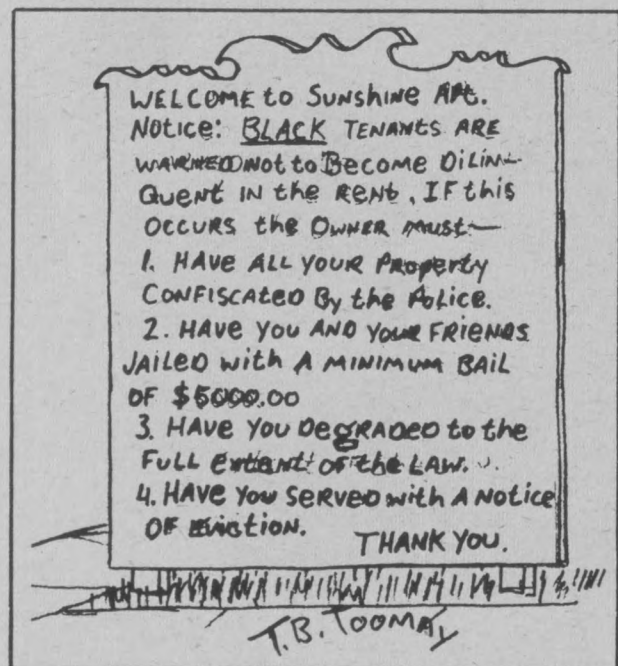 WELCOME to SUNSHINE APt.
Notice: BLACK TENANTS ARE
WARNED Not to Become DiLiN-
Quent IN the RENT. IF this
OCCURS the OWNER MUST—
1. HAVE ALL YOUR Property
CONFISCATED By the POLICE.
2. HAVE YOU AND YOUR FRIENDS
JAILED with A MINIMUM BAIL
OF $5000.00
3. HAVE YOU DegRADED to the
FULL extent OF the LAW.
4. HAVE YOU SERVED with A NOTICE
OF Eviction.
THANK YOU.
T.B. TOOMAY